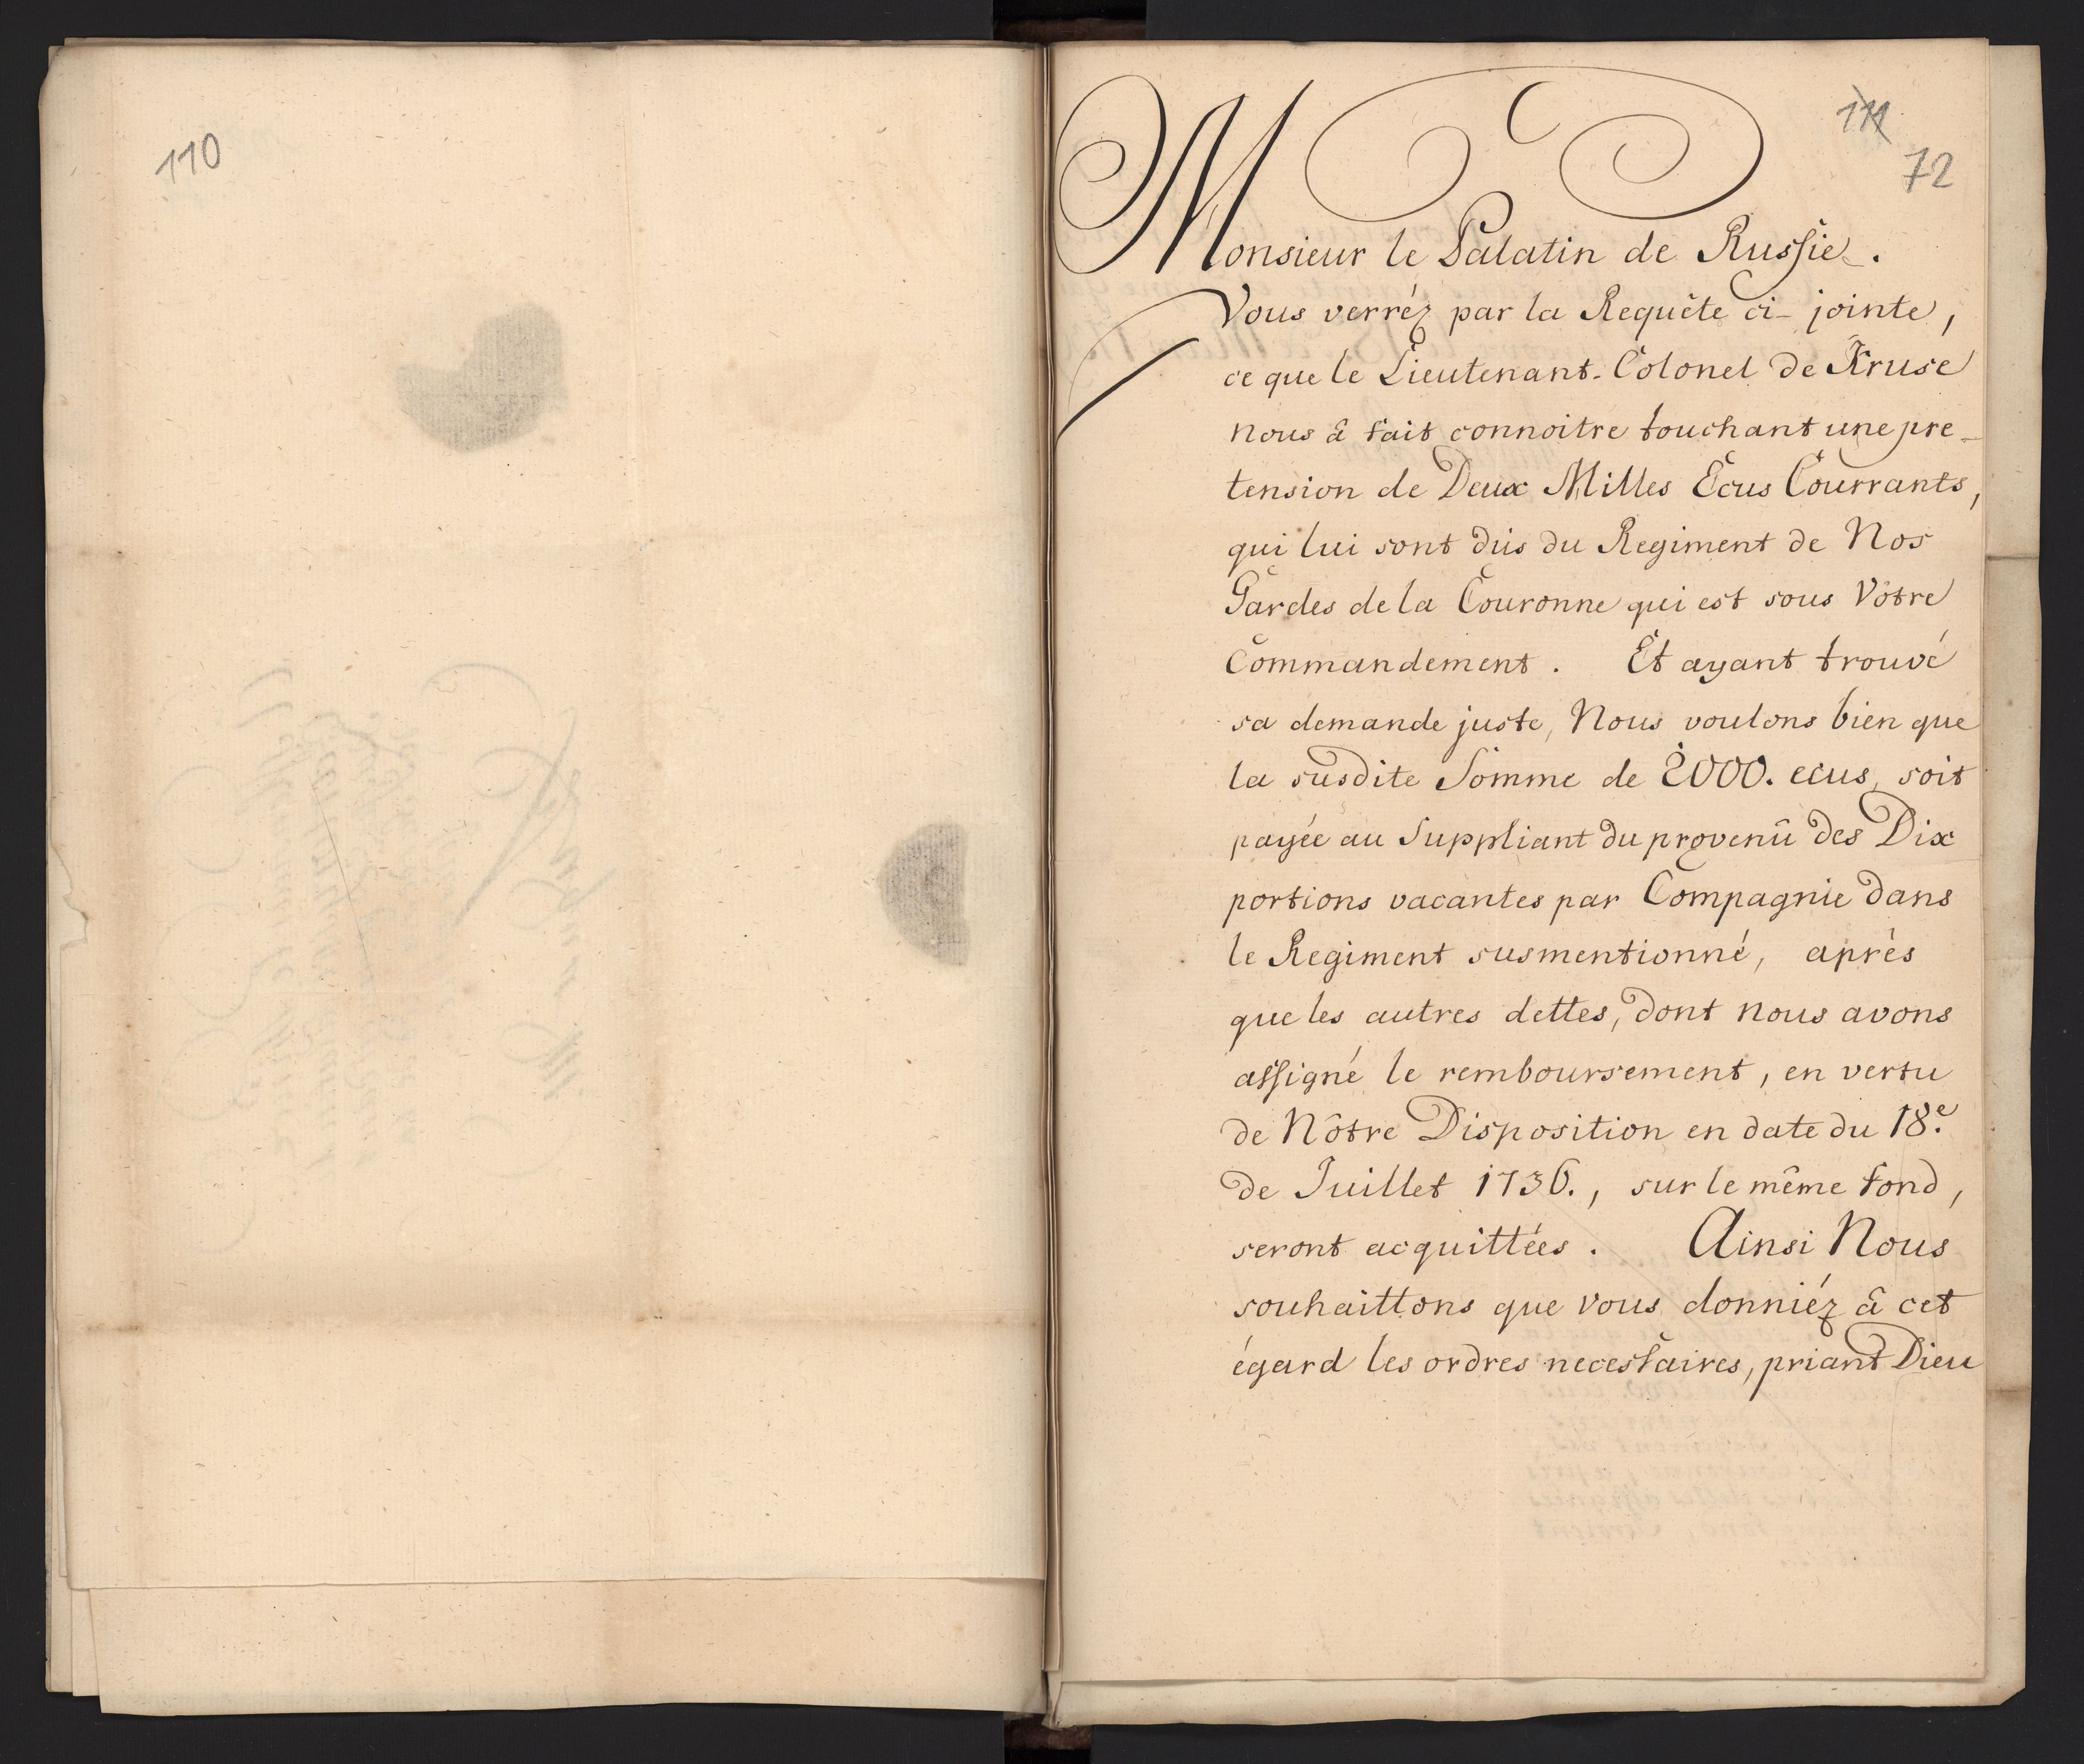 110
111
72
Monsieur le Palatin de Russie.
Vous verréz par la Requête ci-jointe,
ce que le Lieutenant-Colonel de Kruse
nous â fait connoitre touchant une pre-
tension de Deux Milles Ecus Courrants,
qui lui sont dûs du Regiment de Nos
Gardes de la Couronne qui est sous Vôtre
Commandement. Et ayant trouvé
sa demande juste, Nous voulons bien que
la susdite Somme de 2000. ecus, soit
payée au Suppliant du provenû des Dix
portions vacantes par Compagnie dans
le Regiment susmentionné, après
que les autres dettes, dont nous avons
assigné le remboursement, en vertu
de Nôtre Disposition en date du 18.e
de Juillet 1736., sur le même fond,
seront acquittées. Ainsi Nous
souhaittons que vous donniéz â cet
égard les ordres necessaires, priant Dieu